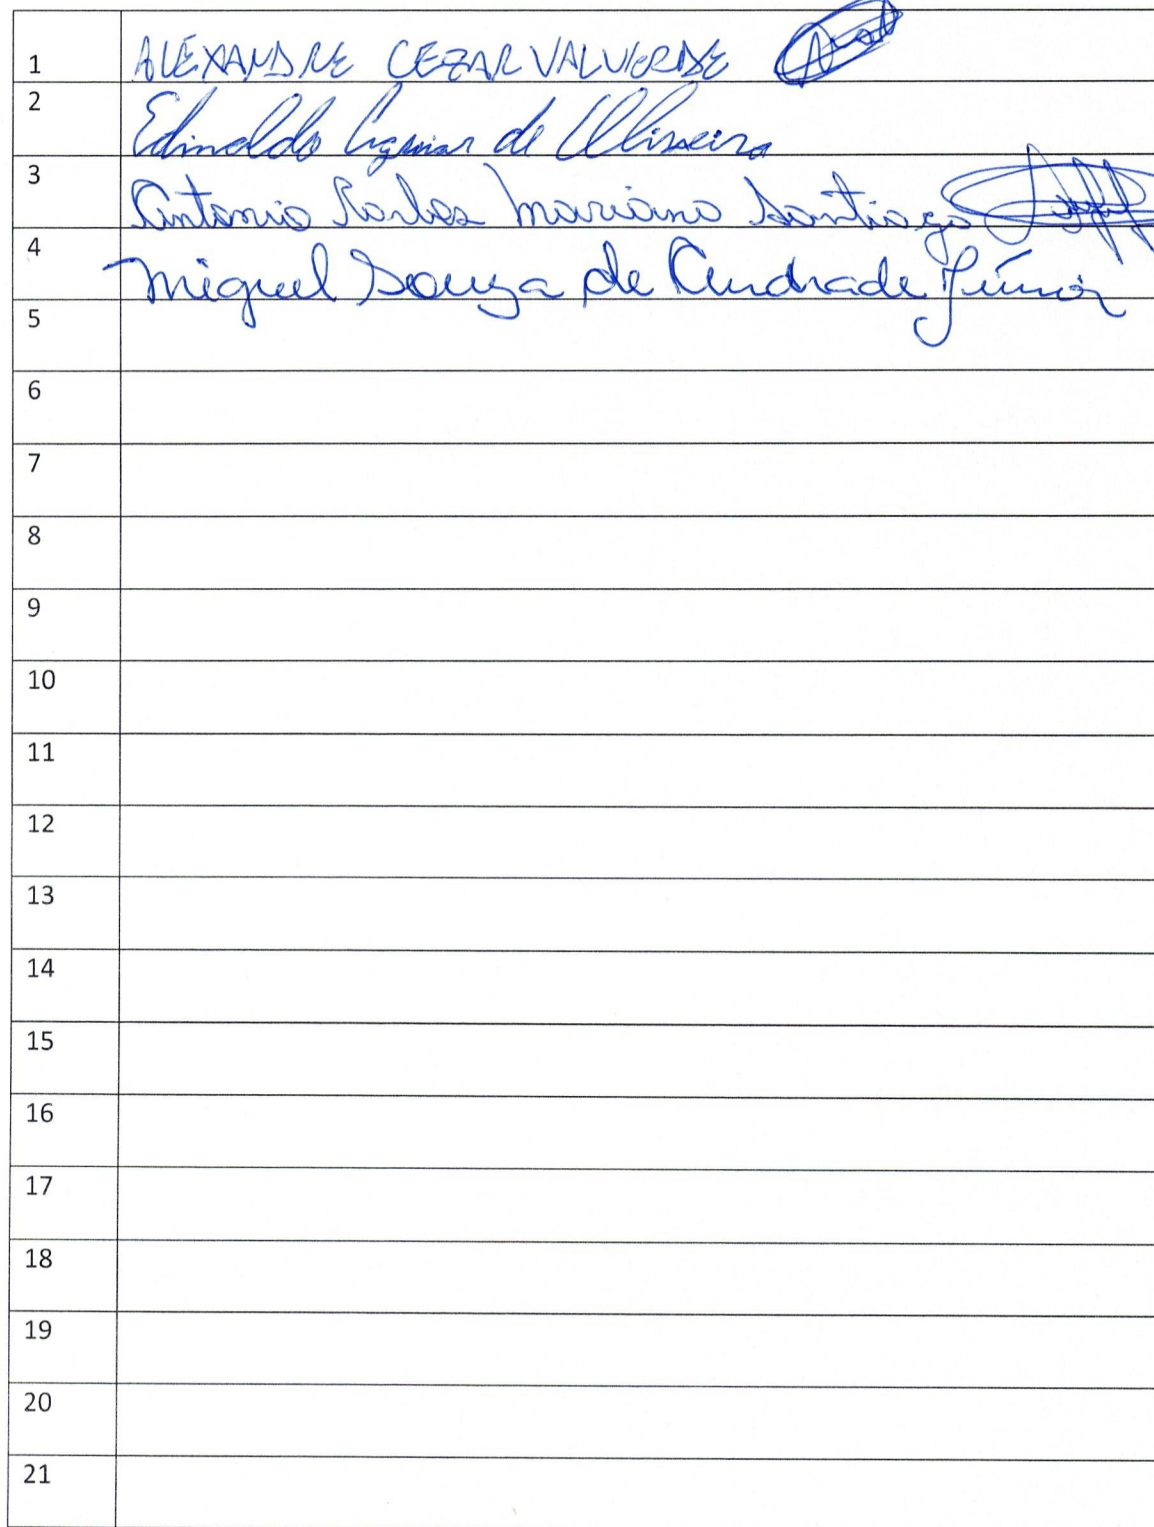 1 ALEXANDRE CEZAR VALVERDE
2 Edinaldo Aguiar de Oliveira
3 Antonio Carlos Mariano Santiago
4 Miguel Souza de Andrade Júnior
5
6
7
8
9
10
11
12
13
14
15
16
17
18
19
20
21